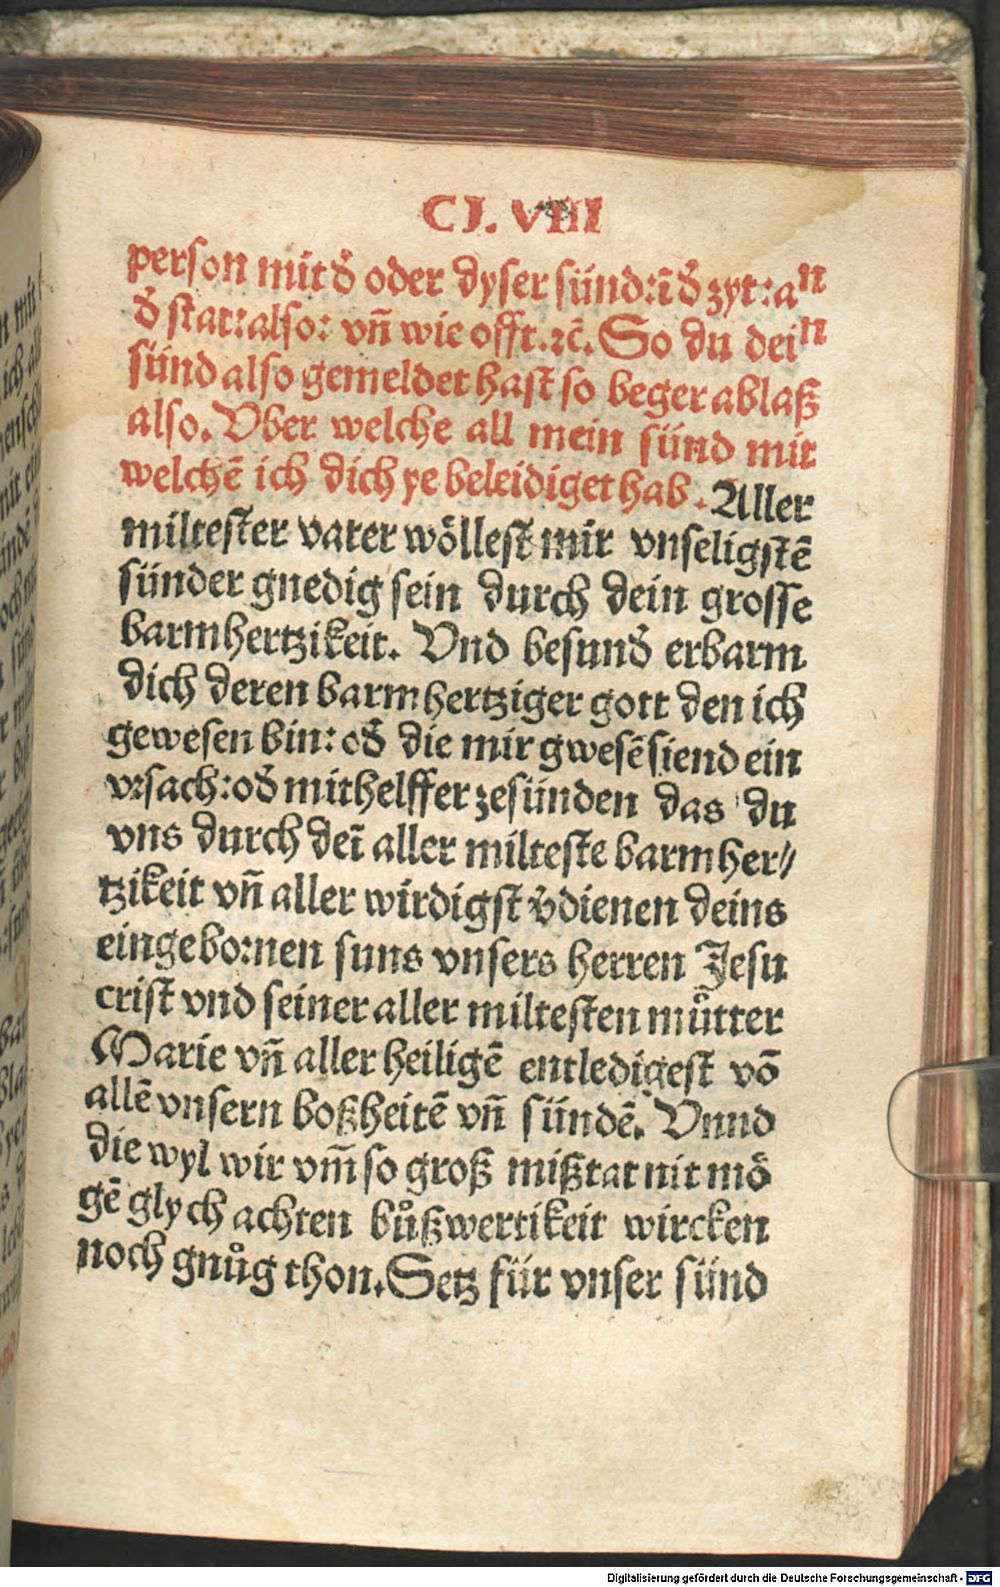 CJ. VIII
person mit d̕ oder dyser sünd:ī d̕ zyt:aⁿ
d̕ stat:also: vn̄ wie offt.ꝛc̄. So du deiⁿ
sünd also gemeldet hast so beger ablaß
also. Vber welche all mein sünd mit
welchē ich dich ye beleidiget hab. Aller
miltester vater wöllest mir vnseligstē
sünder gnedig sein durch dein grosse
barmhertzikeit. Vnd besund̕ erbarm
dich deren barmhertziger gott den ich
gewesen bin: od̕ die mir gwesē siend ein
vrsach:od̕ mithelffer zesünden das du
vns durch deī aller milteste barmher⸗
tzikeit vn̄ aller wirdigst v̕dienen deins
eingebornen suns vnsers herren Jesu
crist vnd seiner aller miltesten můtter
Marie vn̄ aller heiligē entledigest vō
allē vnsern boßheitē vn̄ sündē. Vnnd
die wyl wir vm̄ so groß mißtat nit mö
gē glych achten bůßwertikeit wircken
noch gnůg thon. Setz für vnser sünd
Digitalisierung gefördert durch die Deutsche Forschungsgemeinschaft - DFG